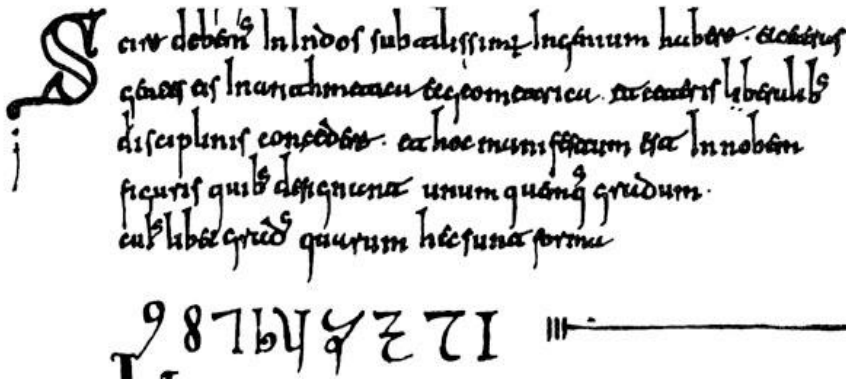 Scire debem' In Indos subtilissimū Ingenium habere. et ceteras
gentes eis In arithmetica et geometrica. et ceteris liberalib'
disciplinis concedere. et hoc manifestum est In nobem
figuris quib' designant unum quemq' gradum.
libet grad' quarum hec sunt forma
9 8 7 6 5 4 3 2 1